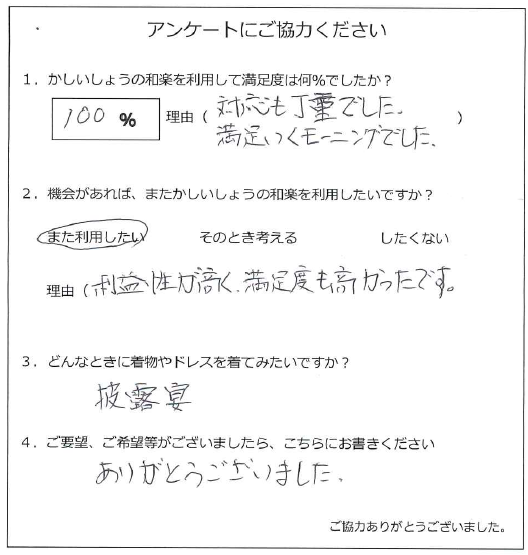 アンケートにご協力ください
1．かしいしょうの和楽を利用して満足度は何%でしたか？
100 %　理由（ 対応も丁重でした、
満足いくモーニングでした、 ）
2．機会があれば、またかしいしょうの和楽を利用したいですか？
また利用したい　そのとき考える　したくない
理由（ 利益性が高く、満足度も高かったです。
3．どんなときに着物やドレスを着てみたいですか？
披露宴
4．ご要望、ご希望等がございましたら、こちらにお書きください
ありがとうございました、
ご協力ありがとうございました。